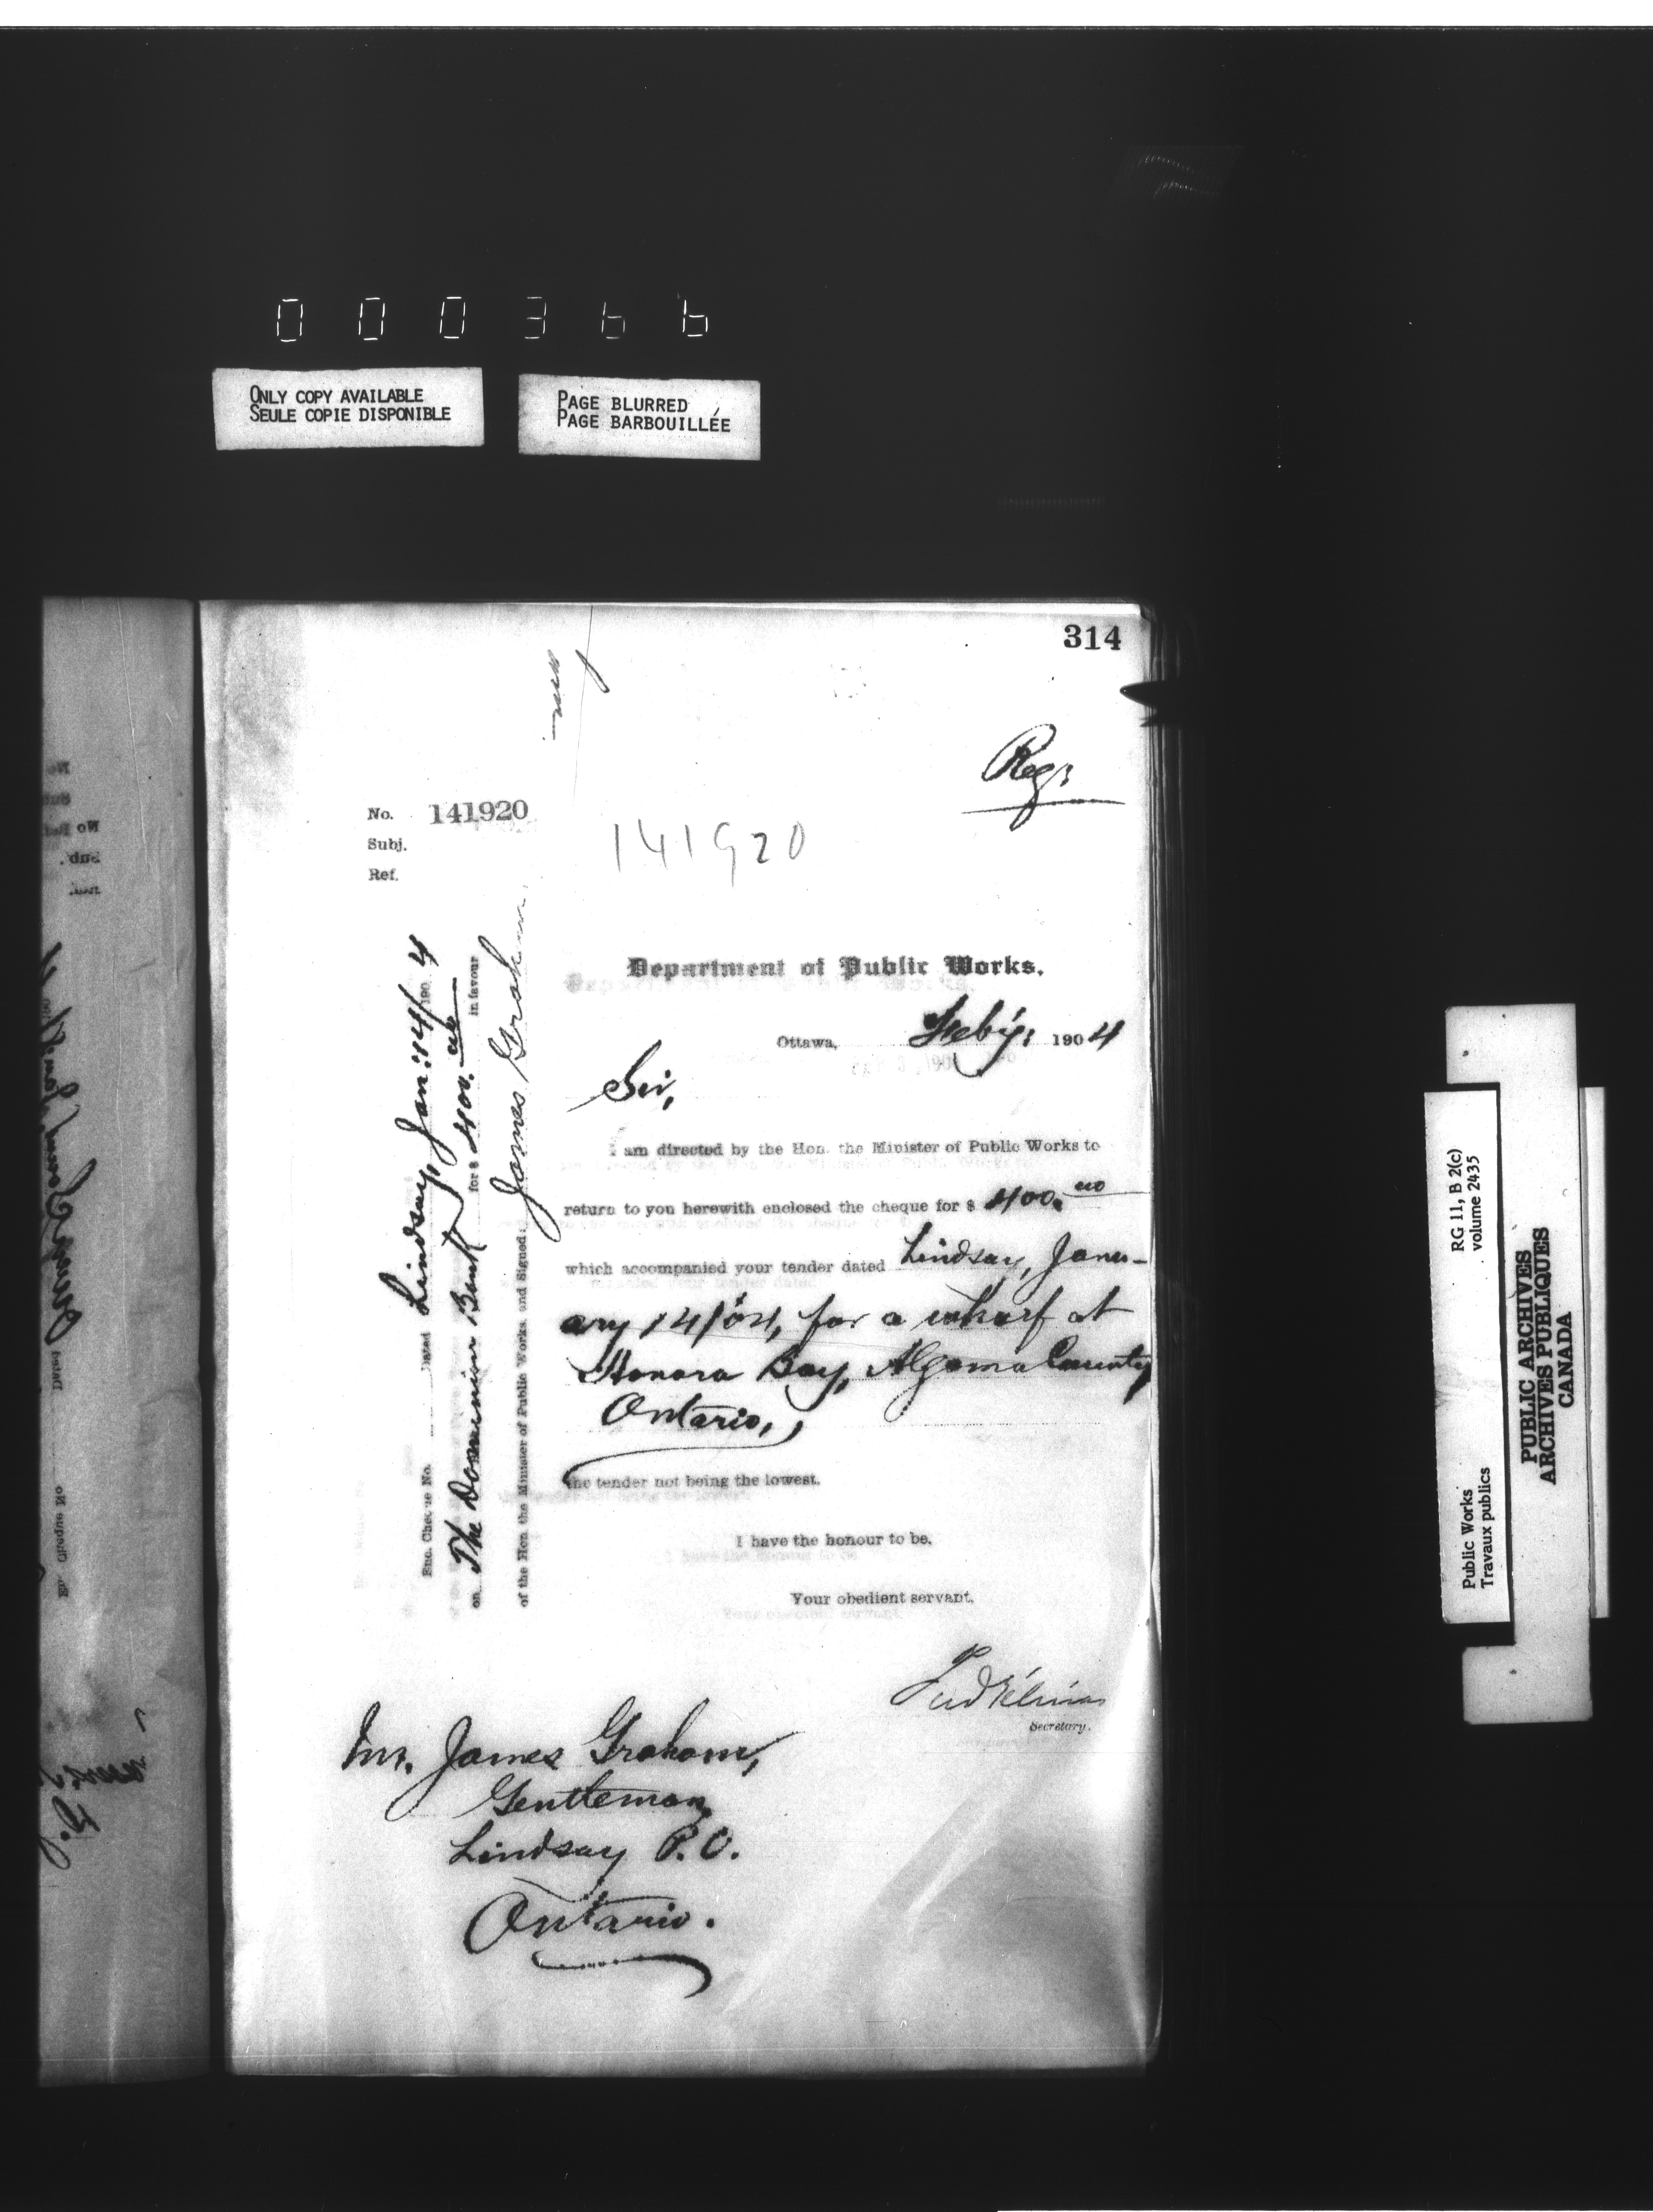 000366
ONLY COPY AVAILABLE
SEULE COPIE DISPONIBLE
PAGE BLURRED
PAGE BARBOUILLÉE
314
Regr
No. 141920
Subj.
Ref.
141920
Department of Public Works.
Ottawa, Feby: 1904
Sir,
I am directed by the Hon. the Minister of Public Works to
return to you herewith enclosed the cheque for $ 400.00
which accompanied your tender dated Lindsay, Janu-
ary 14/04, for a wharf at
Honora Bay, Algoma County
Ontario,
the tender not being the lowest.
I have the honour to be,
Your obedient servant,
Secretary.
Mr. James Graham,
Gentleman,
Lindsay P.O.
Ontario.
Enc. Cheque No. Dated Lindsay, Jan: 14/1904
on The Dominion Bank for $ 400.00 in favour
of the Hon. the Minister of Public Works, and Signed: James Graham
RG 11, B 2(c)
volume 2435
Public Works
Travaux publics
PUBLIC ARCHIVES
ARCHIVES PUBLIQUES
CANADA